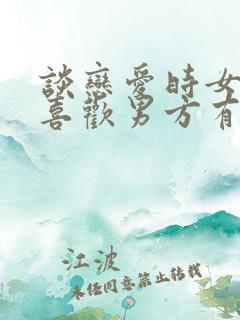 談戀愛時女
喜歡男方有
江波
未經同意禁止轉載